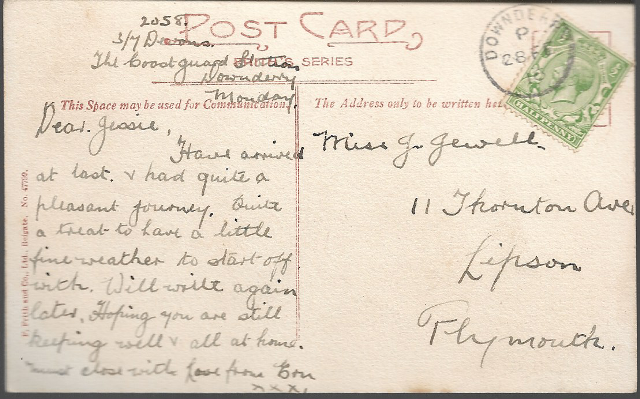 2058.
POST CARD
3/7 Devons.
The Coastguard Station
Downderry
Monday.
SERIES
DOWNDERRY
28
HALFPENNY
This Space may be used for Communication.
The Address only to be written here
Dear Jessie,
Have arrived
at last. & had quite a
pleasant journey. Quite
a treat to have a little
fine weather to start off
with. Will write again
later. Hoping you are still
keeping well & all at home.
must close with Love from Ern
xxxx
Miss J. Jewell.
11 Thornton Ave
Lipson
Plymouth.
F. Frith and Co., Ltd., Reigate. No.